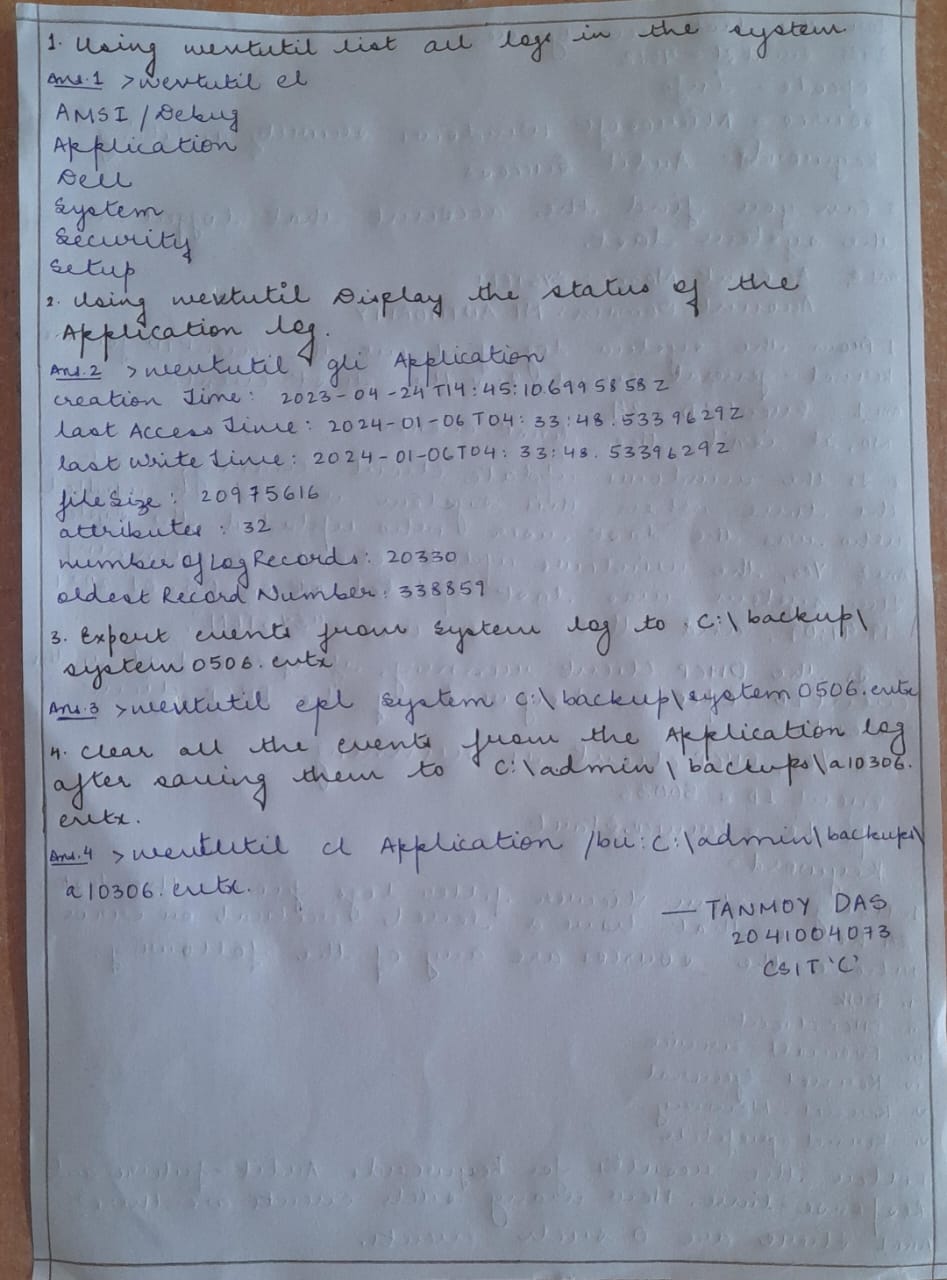 1. Using wevtutil list all logs in the system
Ans.1 >wevtutil el
AMSI / Debug
Application
Dell
System
Security
Setup
2. Using wevtutil Display the status of the
Application log.
Ans.2 >wevtutil gli Application
creation Time: 2023-04-24T14:45:10.6995858Z
last Access Time: 2024-01-06T04:33:48.5339629Z
last Write Time: 2024-01-06T04:33:48.5339629Z
fileSize: 20975616
attributes: 32
number Of Log Records: 20330
oldest Record Number: 338859
3. Export events from System log to C:\backup\
system0506.evtx
Ans.3 >wevtutil epl System C:\backup\system0506.evtx
4. Clear all the events from the Application log
after saving them to C:\admin\backups\a10306.
evtx.
Ans.4 >wevtutil cl Application /bu:C:\admin\backups\
a10306.evtx.
— TANMOY DAS
2041004073
CSIT 'C'